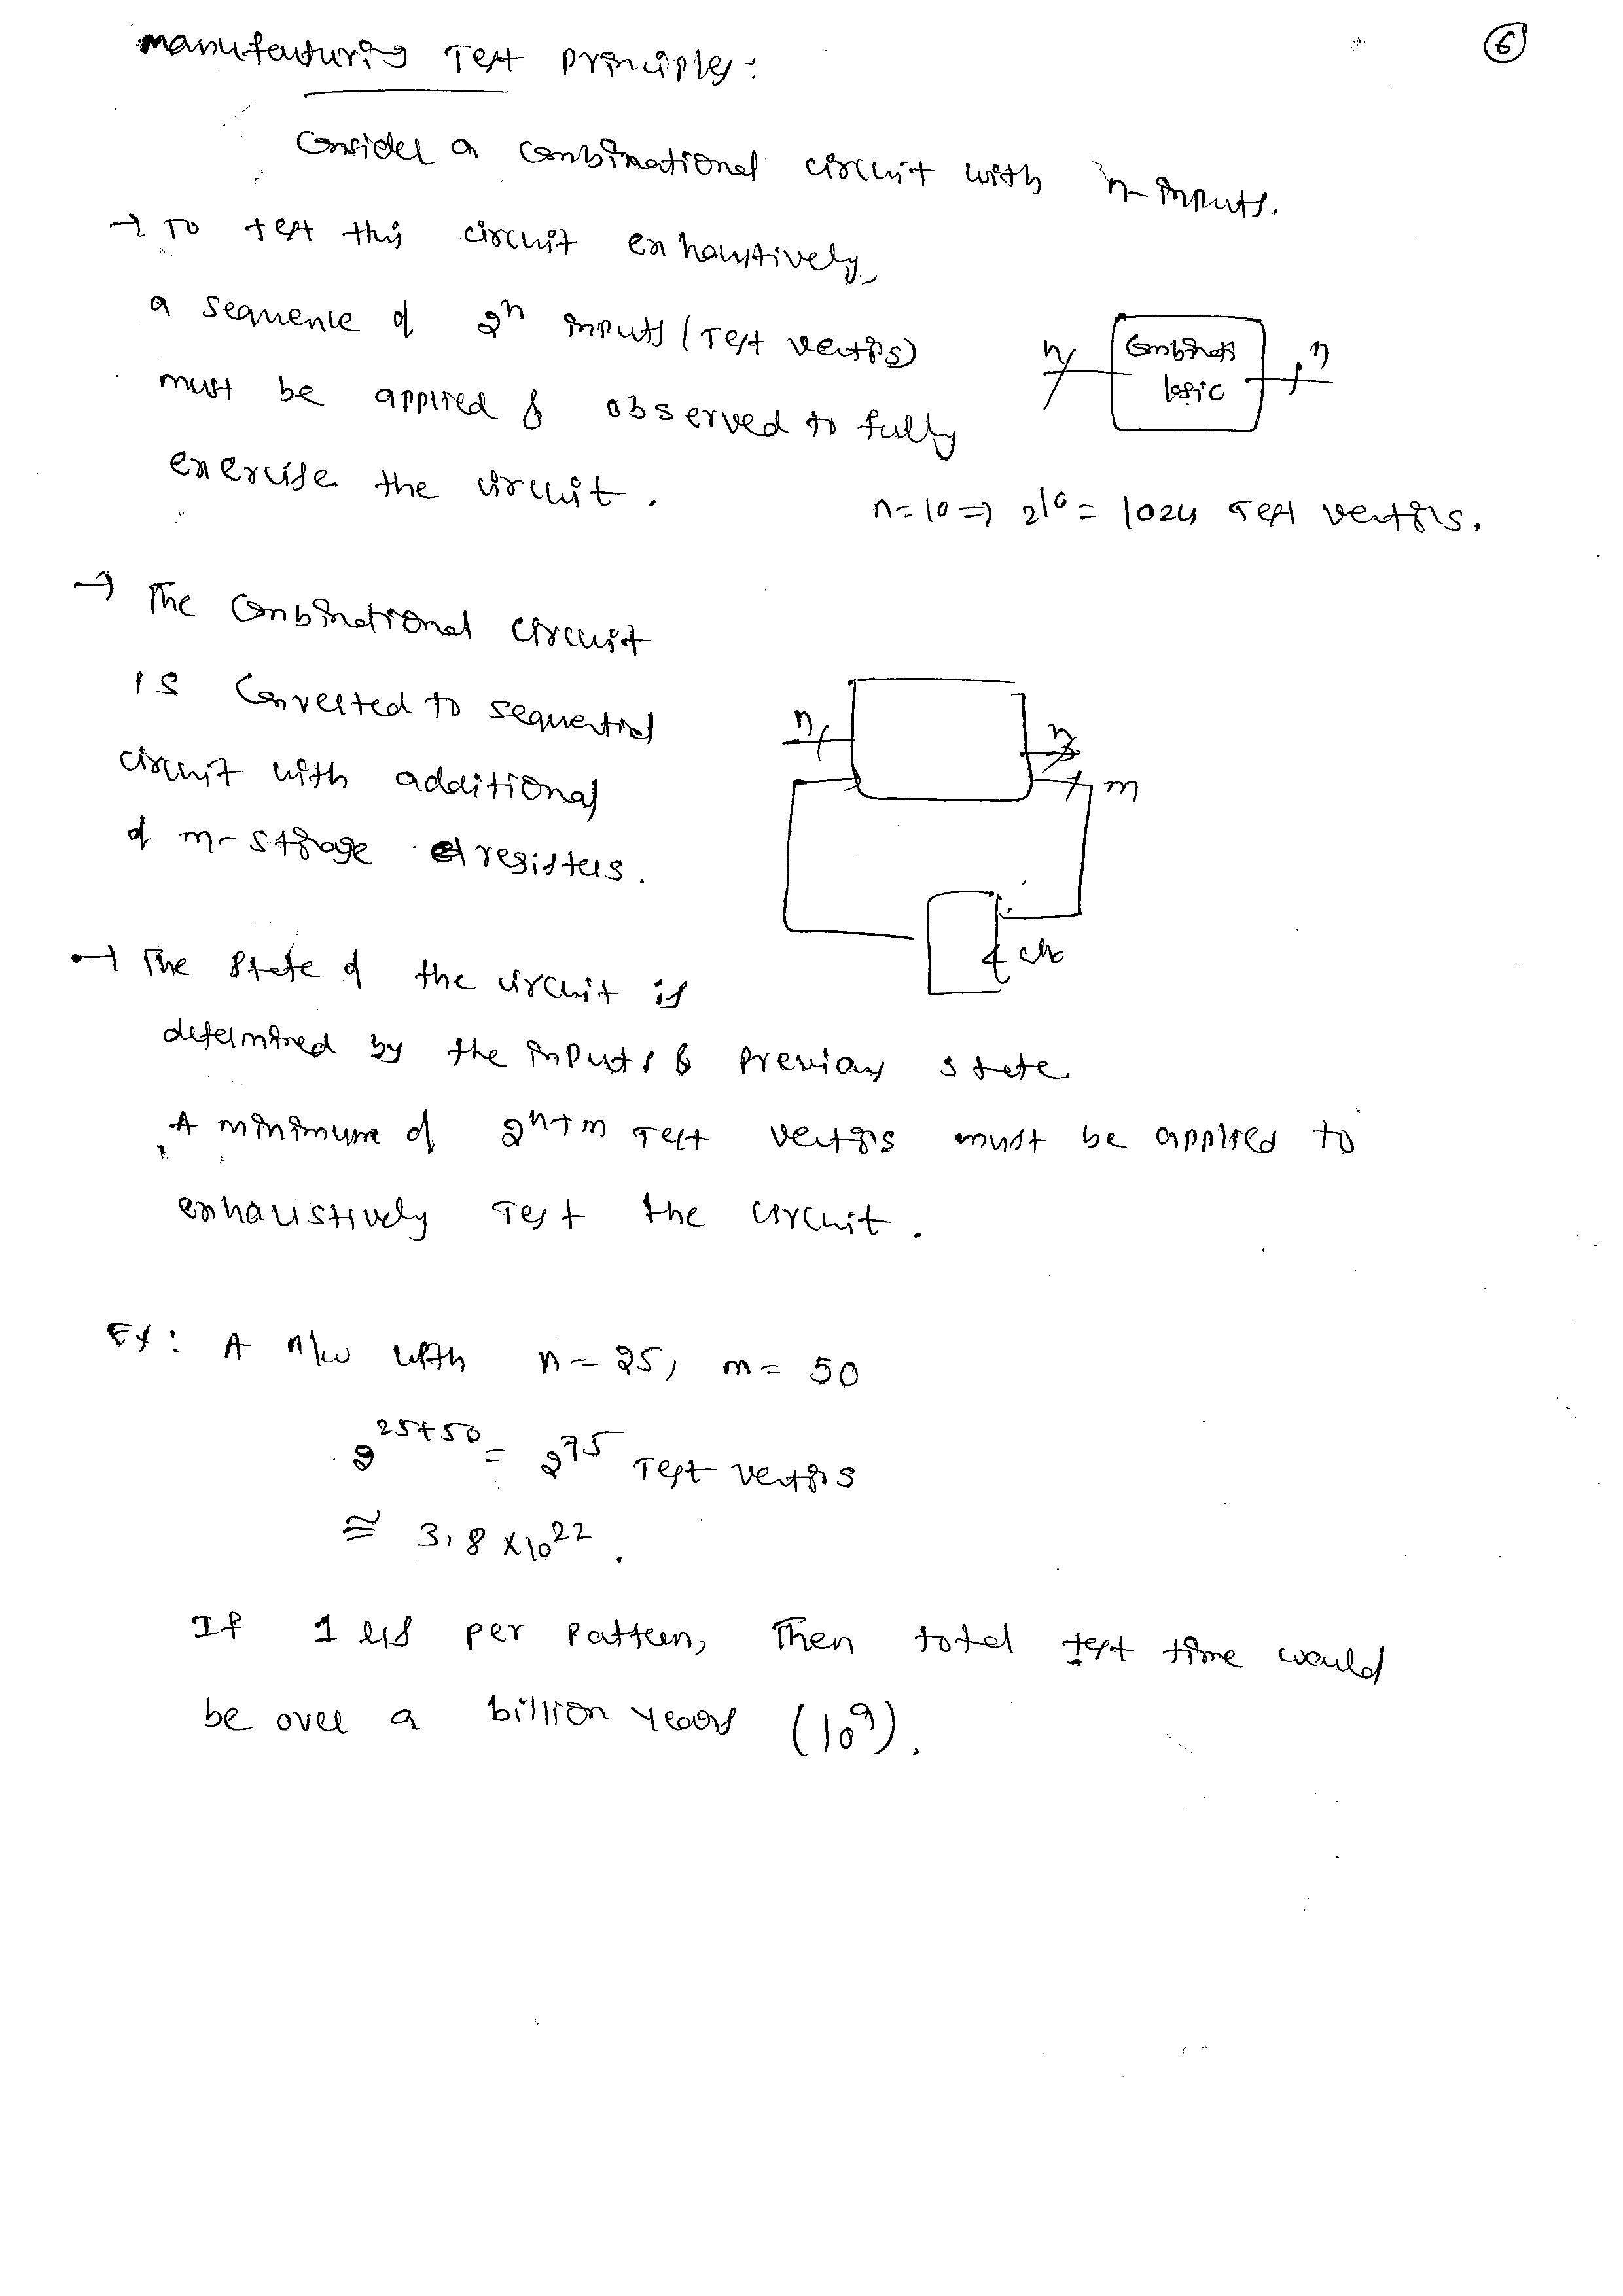 ⑥
Manufacturing Test Principles:
Consider a combinational circuit with n-inputs.
→ To test this circuit exhaustively,
a sequence of 2ⁿ inputs (Test vectors)
must be applied & observed to fully
exercise the circuit.
n Combinat logic n
n=10 ⇒ 2¹⁰ = 1024 Test vectors.
→ The Combinational circuit
is Converted to sequential
circuit with additional
of m-storage registers.
n n m
clk
→ The state of the circuit is
determined by the inputs & previous state
A minimum of 2ⁿ⁺ᵐ Test vectors must be applied to
exhaustively Test the circuit.
Ex: A n/w with n = 25, m = 50
2²⁵⁺⁵⁰ = 2⁷⁵ Test vectors
≅ 3.8 x10²².
If 1 us per Pattern, Then total test time would
be over a billion years (10⁹).